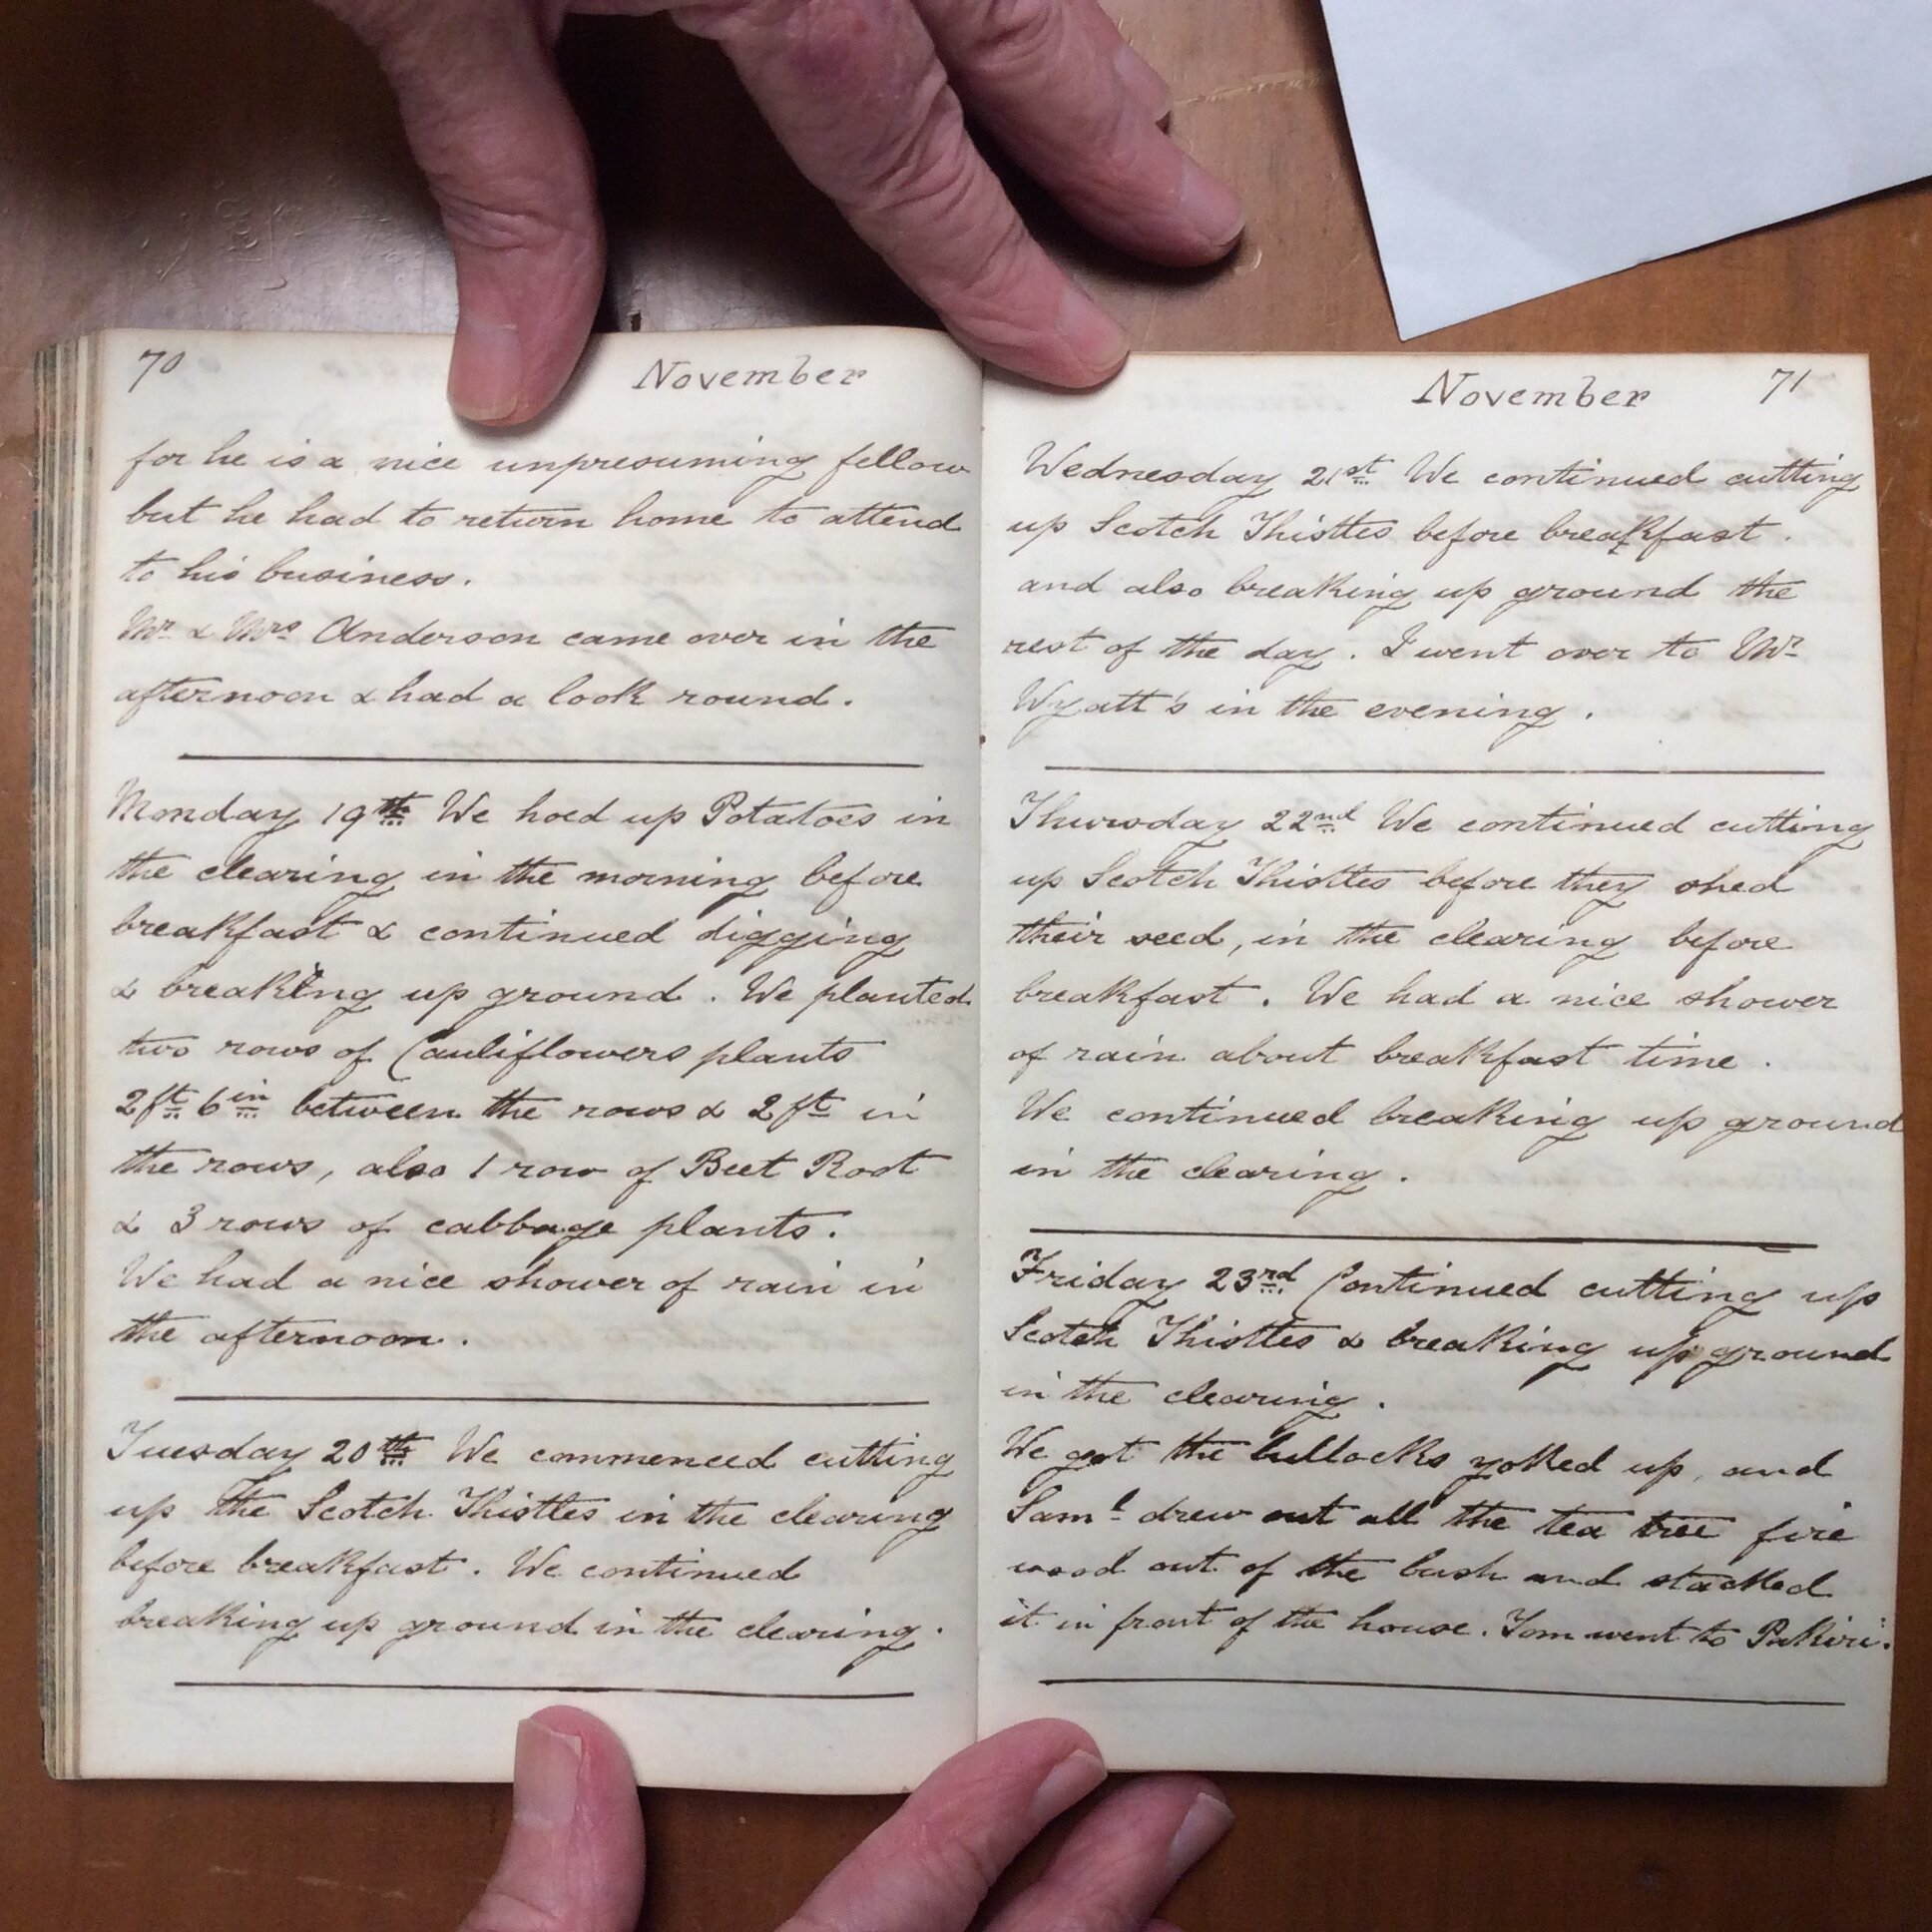 70 November
for he is a nice unpresuming fellow
but he had to return home to attend
to his business.
Mr & Mrs Anderson came over in the
afternoon & had a look round.
Monday 19th We hoed up Potatoes in
the clearing in the morning before
breakfast & continued digging
& breaking up ground. We planted
two rows of Cauliflowers plants
2ft 6in between the rows & 2ft in
the rows, also 1 row of Beet Root
& 3 rows of cabbage plants.
We had a nice shower of rain in
the afternoon.
Tuesday 20th We commenced cutting
up the Scotch Thistles in the clearing
before breakfast. We continued
breaking up ground in the clearing.
November 71
Wednesday 21st We continued cutting
up Scotch Thistles before breakfast.
and also breaking up ground the
rest of the day. I went over to Mr
Wyatt's in the evening.
Thursday 22nd We continued cutting
up Scotch Thistles before they shed
their seed, in the clearing before
breakfast. We had a nice shower
of rain about breakfast time.
We continued breaking up ground
in the clearing.
Friday 23rd Continued cutting up
Scotch Thistles & breaking up ground
in the clearing.
We got the bullocks yoked up, and
Saml drew out all the tea tree fire
wood out of the bush and stacked
it in front of the house. Tom went to Pakiri.